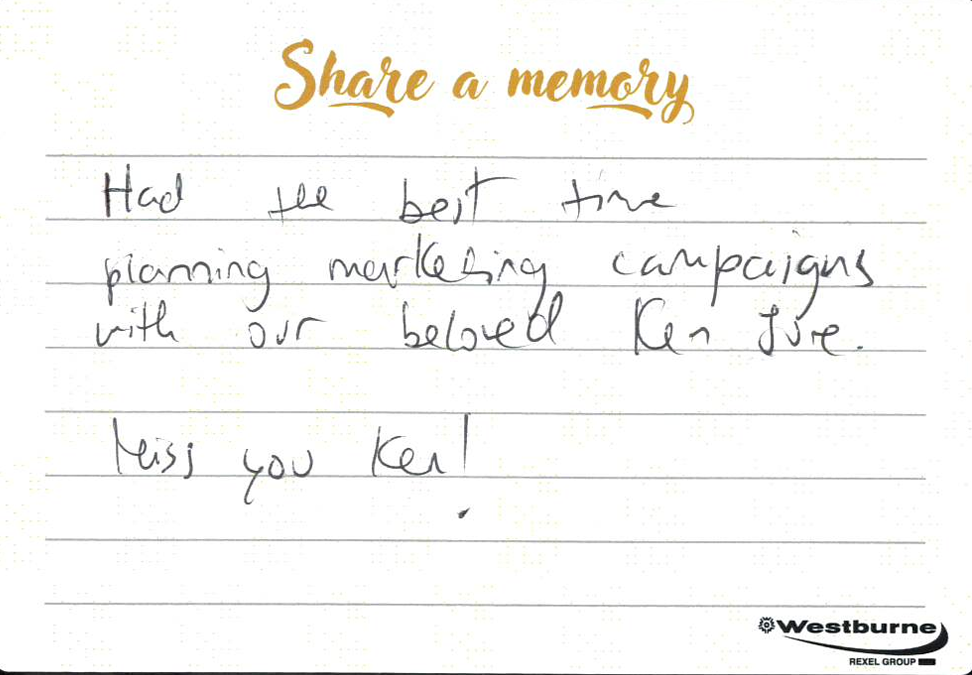 Share a memory
Had the best time
planning marketing campaigns
with our beloved Ken
Miss you Ken!
Westburne
REXEL GROUP